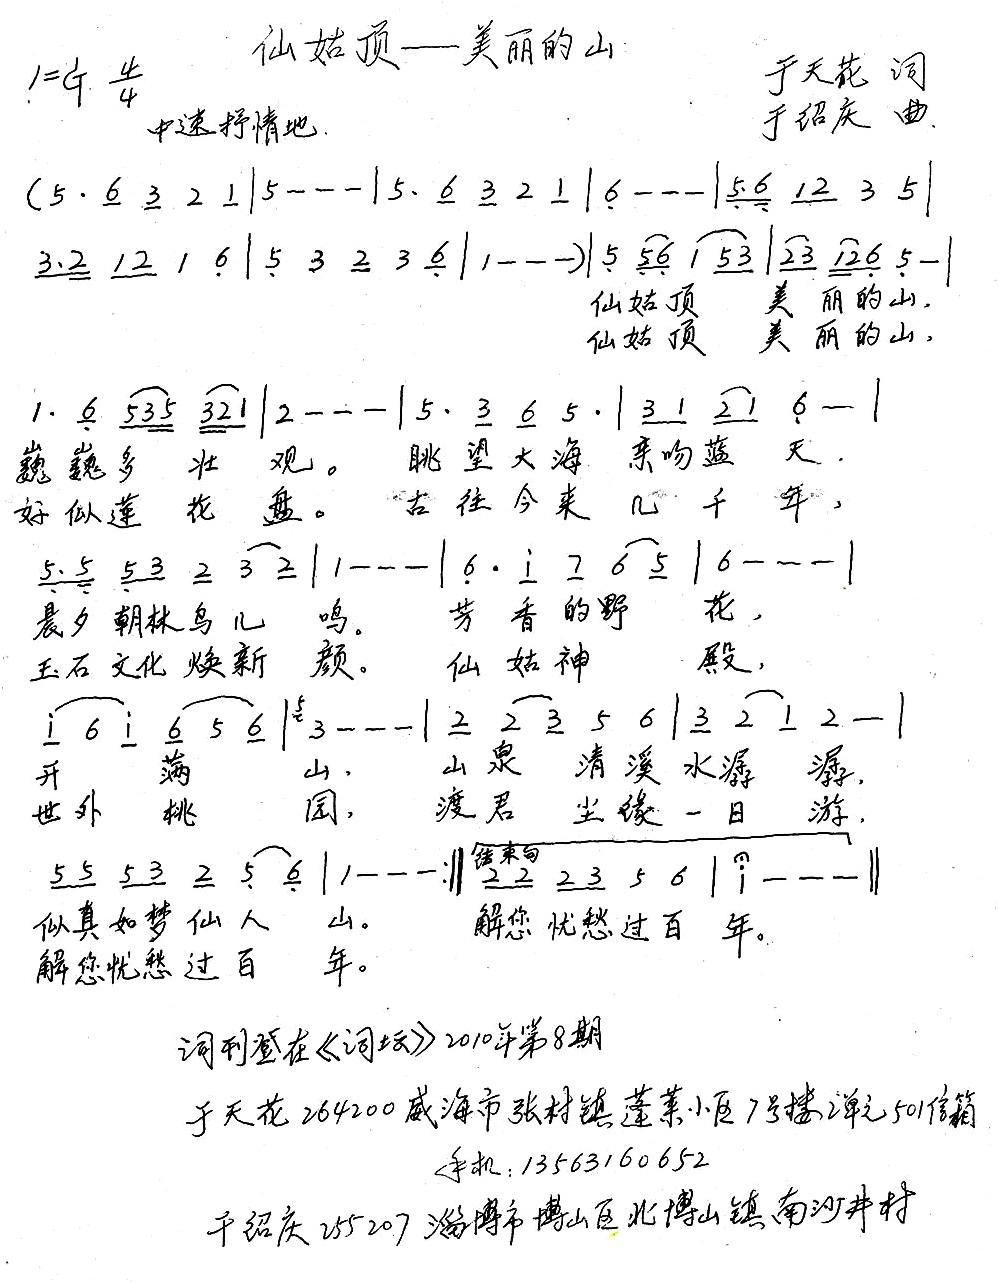 仙姑顶——美丽的山
1=G 4/4
于天花 词
中速抒情地
于绍庆 曲
(5· 6 3 2 1|5---|5· 6 3 2 1|6---|5·6 12 3 5|
3·2 12 1 6|5 3 2 3 6|1---)|5 56 1 53|23 126 5-|
仙姑顶 美丽的山,
仙姑顶 美丽的山,
1· 6 535 321|2---|5· 3 6 5·|31 21 6-|
巍巍多壮观。 眺望大海亲吻蓝天.
好似莲花盘。 古往今来几千年,
5·5 53 2 32|1---|6· i 7 65|6---|
晨夕朝林鸟儿鸣。 芳香的野花,
玉石文化焕新颜。 仙姑神殿,
i 6 i 6 5 6|5 3---|2 23 5 6|3 2 1 2-|
开满山. 山泉清溪水潺潺,
世外桃园, 渡君尘缘一日游,
55 53 2 5 6|1---:‖结束句 22 23 5 6|i---‖
似真如梦仙人山。 解您忧愁过百年。
解您忧愁过百年。
词刊登在《词坛》2010年第8期
于天花 264200 威海市张村镇蓬莱小区7号楼2单元501信箱
手机:13563160652
于绍庆 255207 淄博市博山区北博山镇南沙井村